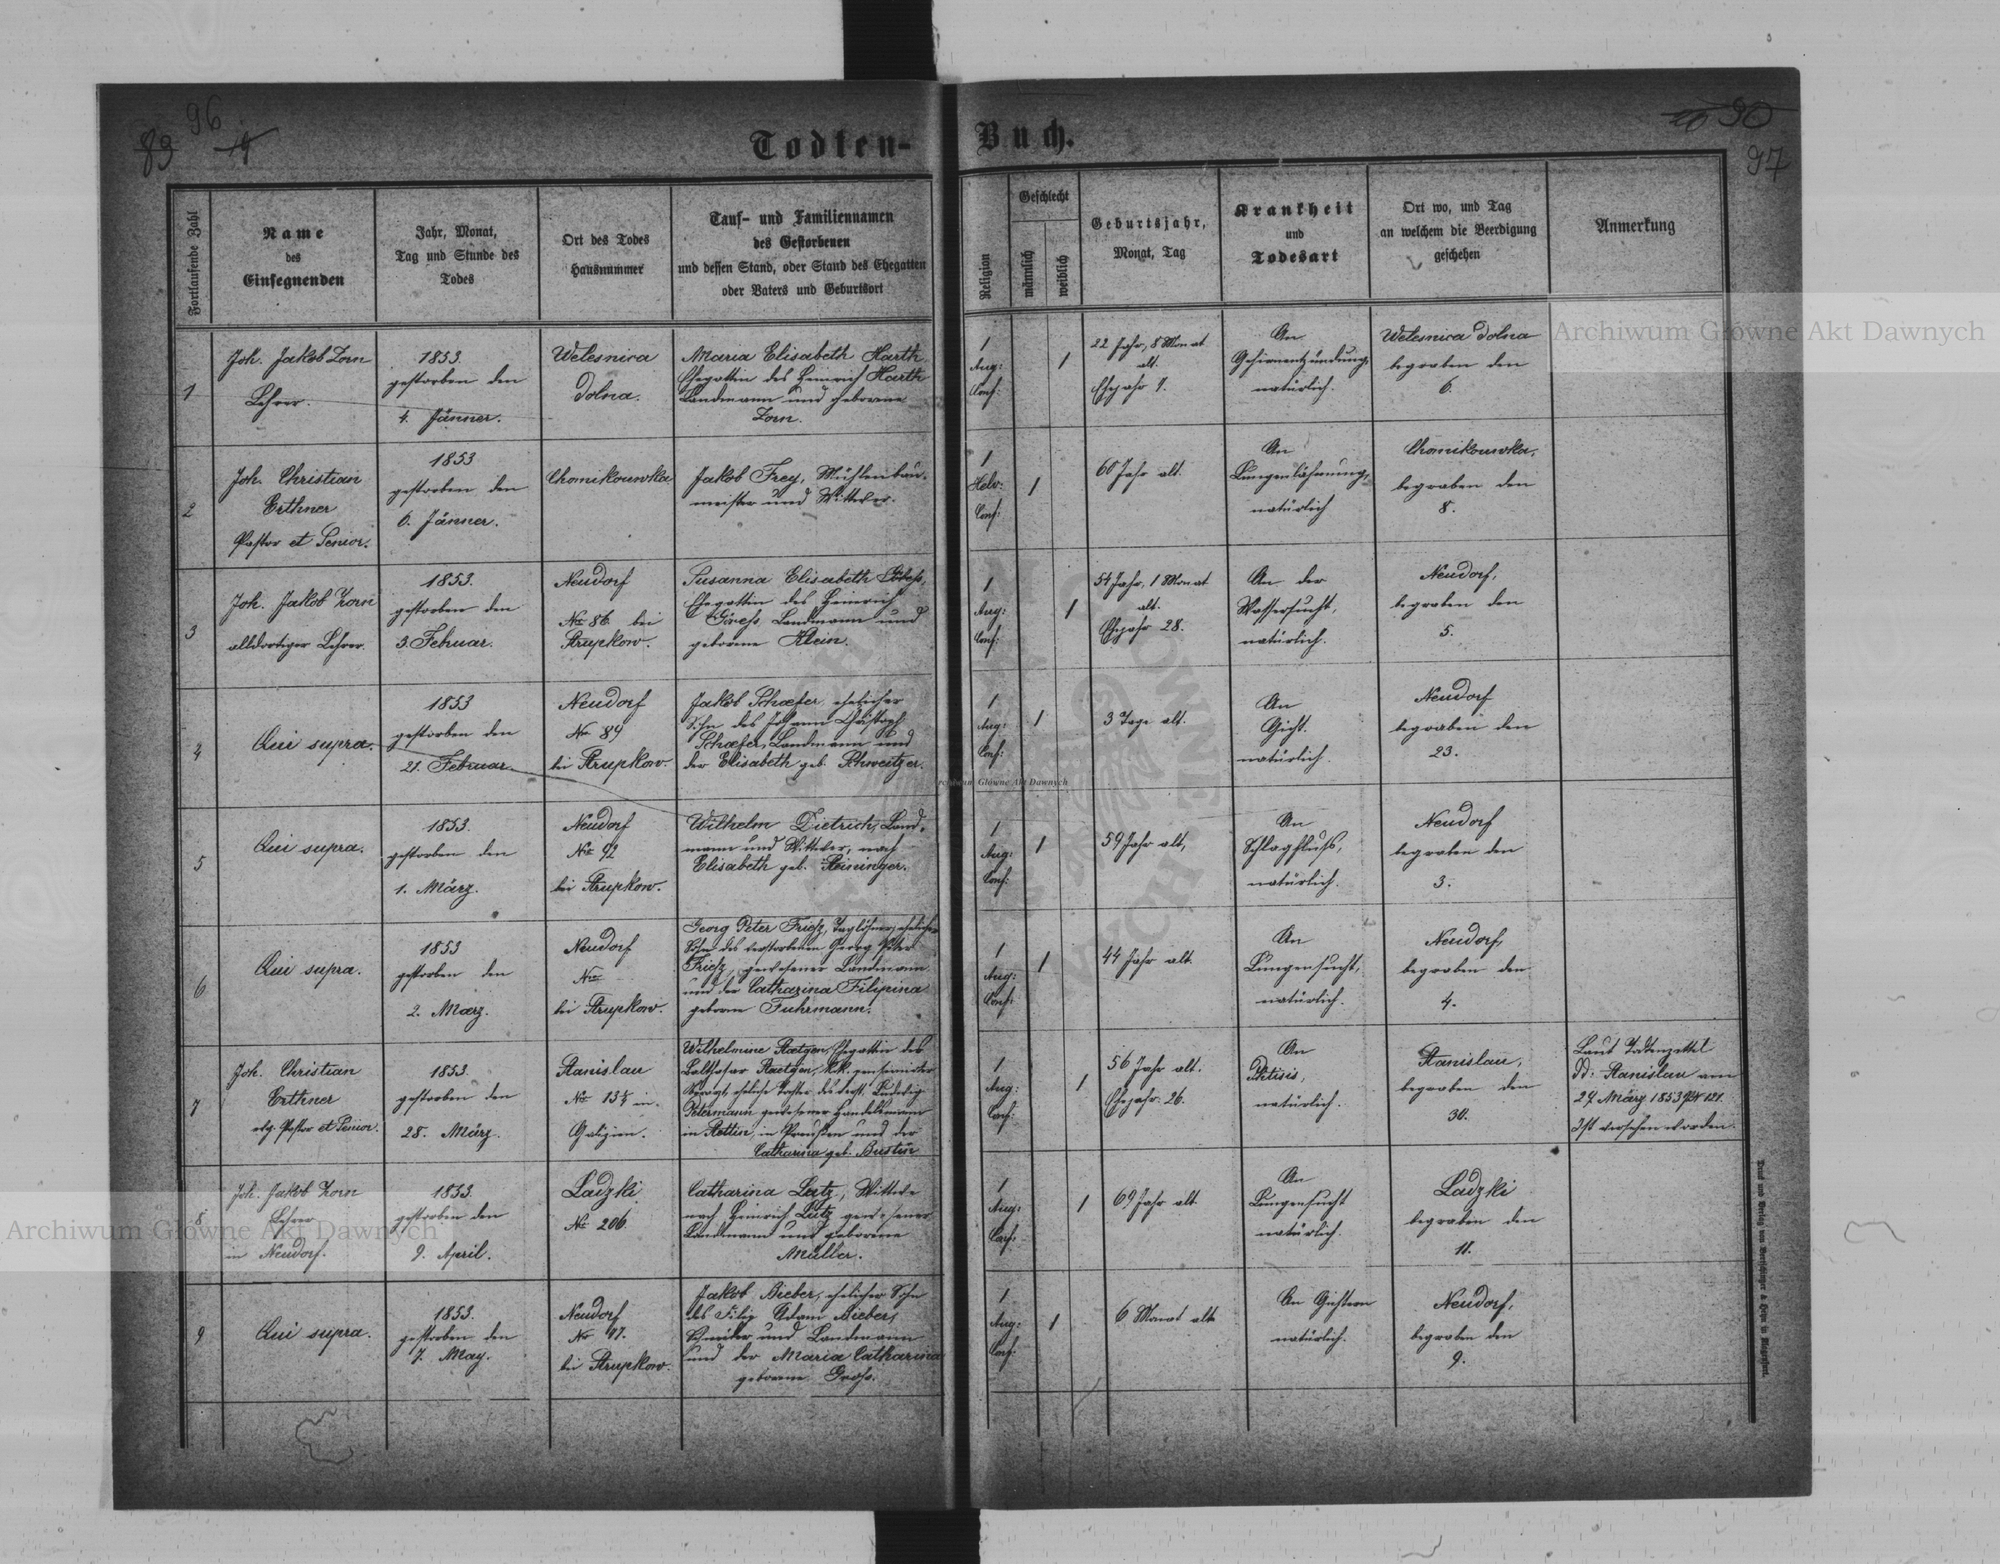 96
83
19
Todten-
Buch.
20 90
97
Fortlaufende Zahl
Name
des
Einsegnenden
Jahr, Monat,
Tag und Stunde des
Todes
Ort des Todes
Hausnummer
Tauf- und Familiennamen
des Gestorbenen
und dessen Stand, oder Stand des Ehegatten
oder Vaters und Geburtsort
Religion
Geschlecht
männlich
weiblich
Geburtsjahr,
Monat, Tag
Krankheit
und
Todesart
Ort wo, und Tag
an welchem die Beerdigung
geschehen
Anmerkung
1
Joh. Jakob Zorn
Lehrer.
1853.
gestorben den
4. Jänner.
Welesnica
dolna.
Maria Elisabeth Harth
Ehegattin des Heinrich Harth
Landmann und geborene
Zorn.
1
Aug:
Conf:
1
22 Jahr, 8 Monat
alt.
Ehejahr 7.
An
Gehirnentzündung,
natürlich.
Welesnica dolna
begraben den
6.
2
Joh. Christian
Erthner
Pastor et Senior.
1853
gestorben den
6. Jänner.
Chomikouwka
Jakob Frey, Mühlenbau-
meister und Wittwer.
1
Helv:
Conf:
1
60 Jahr alt.
An
Lungenlähmung,
natürlich
Chomikouwka,
begraben den
8.
3
Joh. Jakob Zorn
alldortiger Lehrer.
1853.
gestorben den
3. Februar.
Neudorf
No 86 bei
Strupkow.
Susanna Elisabeth
Ehegattin des Heinrich
Landmann und
geborene Klein.
1
Aug:
Conf:
1
54 Jahr, 1 Monat
alt.
Ehejahr 28.
An der
Wassersucht,
natürlich.
Neudorf,
begraben den
5.
4
Qui supra.
1853
gestorben den
21. Februar
Neudorf
No 84
bei Strupkow.
Jakob Schaefer, ehelicher
Sohn des Johann Christoph
Schaefer, Landmann und
der Elisabeth geb. Schweitzer.
1
Aug:
Conf:
1
3 Tage alt.
An
Gicht.
natürlich.
Neudorf
begraben den
23.
5
Qui supra.
1853.
gestorben den
1. März.
Neudorf
No 92
bei Strupkow.
Wilhelm Dietrich, Land-
mann und Wittwer, nach
Elisabeth geb. Reininger.
1
Aug:
Conf:
1
59 Jahr alt,
An
Schlagfluß,
natürlich.
Neudorf
begraben den
3.
6
Qui supra.
1853
gestorben den
2. Maerz.
Neudorf
No
bei Strupkow.
Georg Peter Friess, Taglöhner, ehelicher
Sohn des verstorbenen Georg Peter
Friess, gewesener Landmann
und der Catharina Filipina
geborene Fuhrmann.
1
Aug:
Conf:
1
44 Jahr alt.
An
Lungensucht,
natürlich.
Neudorf,
begraben den
4.
7
Joh. Christian
Erthner
evg. Pastor et Senior.
1853.
gestorben den
28. März.
Stanislau
No 13¾ in
Galizien.
Wilhelmine Raetgen, Ehegattin des
Balthasar Raetgen, k.k. pensionirter
eheliche Tochter des verst. Ludwig
Petermann gewesener Handelsmann
in Stettin, in Preußen und der
Catharina geb. Bustin
1
Aug:
Conf:
1
56 Jahr alt.
Ehejahr 26.
An
natürlich.
Stanislau,
begraben den
30.
Laut Totenzettel
dd: Stanislau am
29 März 1853 No 121.
Ist versehen worden.
8
Joh. Jakob Zorn
Lehrer
in Neudorf.
1853.
gestorben den
9. April.
Ladzki
No 206.
Catharina Lutz, Wittwe
nach Heinrich Lutz gewesener
Landmann und geborene
Müller.
1
Aug:
Conf:
1
69 Jahr alt.
An
Lungensucht
natürlich.
Ladzki
begraben den
11.
9
Qui supra.
1853.
gestorben den
7. May.
Neudorf
No 41.
bei Strupkow.
Jakob Bieber, ehelicher Sohn
des Filip Adam Bieber,
Schneider und Landmann
und der Maria Catharina
geborene Gross.
1
Aug:
Conf:
1
6 Monat alt
An Gichtern
natürlich.
Neudorf,
begraben den
9.
Archiwum Główne Akt Dawnych
Archiwum Główne Akt Dawnych
Archiwum Główne Akt Dawnych